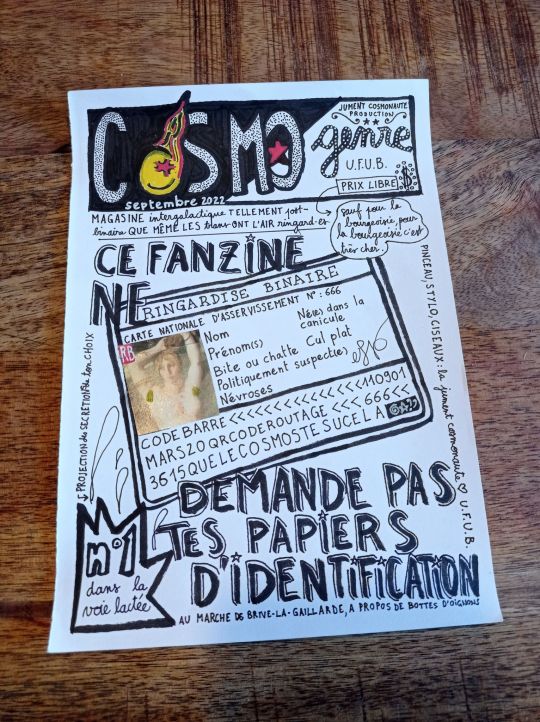 JUMENT COSMONAUTE
PRODUCTION
COSMO
genre
septembre 2022
U.F.U.B.
PRIX LIBRE
MAGASINE intergalactique TELLEMENT post-
binaire QUE MÊME LES trans ONT L'AIR ringard·es
sauf pour la
bourgeoisie, pour
la bourgeoisie c'est
très cher.
CE FANZINE
NE
RINGARDISE BINAIRE
CARTE NATIONALE D'ASSERVISSEMENT N°: 666
RB
Nom
Né(e) dans la
canicule
Prénom(s)
Bite ou chatte
Cul plat
Politiquement suspect(e)
Névroses
CODE BARRE <<<<<<<<<<<<110901
MARS20QRCODEROUTAGE <<<666<<
3615QUELECOSMOSTESUCELA
PINCEAU, STYLO, CISEAUX: la jument cosmonaute ♡ U.F.U.B.
PROJECTION de SECRETION de ton CHOIX
DEMANDE PAS
TES PAPIERS
D'IDENTIFICATION
n°1
dans la
voie lactée
AU MARCHE DE BRIVE-LA-GAILLARDE, A PROPOS DE BOTTES D'OIGNONS